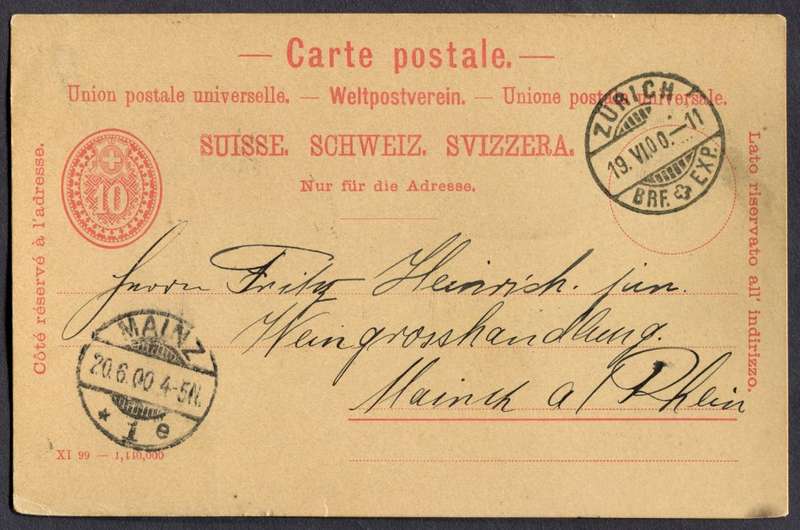 — Carte postale. —
Union postale universelle. — Weltpostverein. — Unione postale universale.
SUISSE. SCHWEIZ. SVIZZERA.
Nur für die Adresse.
10
ZÜRICH 1
19.VI.00.—11
BRF. EXP.
Côté réservé à l'adresse.
Lato riservato all' indirizzo.
Herrn Fritz Heinrich jun.
Weingrosshandlung.
Mainch a/Rhein
MAINZ
20.6.00.4-5N.
* 1 e
XI 99 — 1,110,000